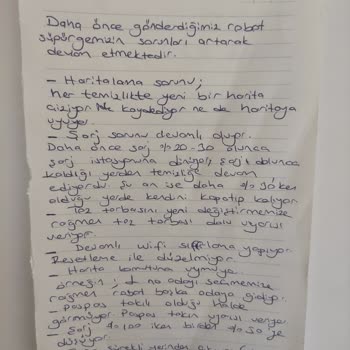 Daha önce gönderdiğimiz robot
süpürgemizin sorunları artarak
devam etmektedir.
- Haritalama sorunu;
her temizlikte yeni bir harita
çiziyor Ne kaydediyor ne de haritaya
uyuyor.
- Şarj sorunu devamlı oluyor.
Daha önce şarj %20-30 olunca
şarj istasyonuna dönüyor, şarj olunca
kaldığı yerden temizliğe devam
ediyordu. Şu an ise daha % 30'ken
olduğu yerde kendini kapatıp kalıyor.
- Toz torbasını yeni değiştirmemize
rağmen toz torbası dolu uyarısı
veriyor.
- Devamlı wifi sıfırlama yapıyor.
Resetleme ile düzelmiyor.
- Harita komutuna uymuyor
örneğin; 1 no odayı seçmemize
rağmen robot başka odaya gidiyor.
- Paspas takılı olduğu halde
görmüyor. Paspas takın uyarısı veriyor
- Şarj %100 iken birden %50 ye
düşüyor.